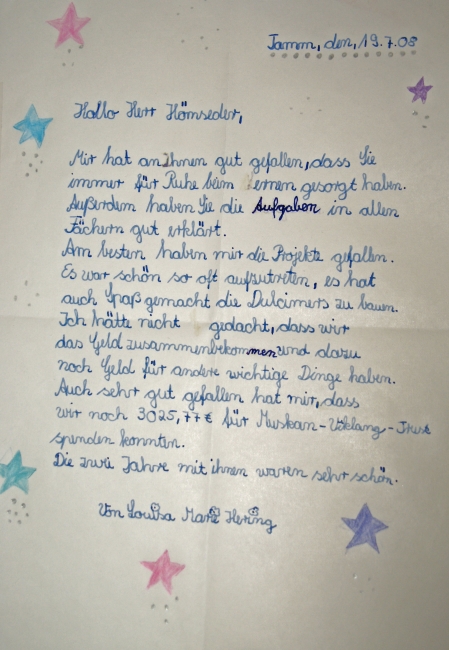 Tamm, den, 19.7.08
Hallo Herr Hömseder,
Mir hat an Ihnen gut gefallen, dass Sie
immer für Ruhe beim ernen gesorgt haben.
Außerdem haben Sie die Aufgaben in allen
Fächern gut erklärt.
Am besten haben mir die Projekte gefallen.
Es war schön so oft aufzutreten, es hat
auch Spaß gemacht die Dulcimers zu bauen.
Ich hätte nicht gedacht, dass wir
das Geld zusammenbekommen und dazu
noch Geld für andere wichtige Dinge haben.
Auch sehr gut gefallen hat mir, dass
wir noch 3025,77 € für
spenden konnten.
Die zwei Jahre mit ihnen waren sehr schön.
Von Louisa Marie Hering